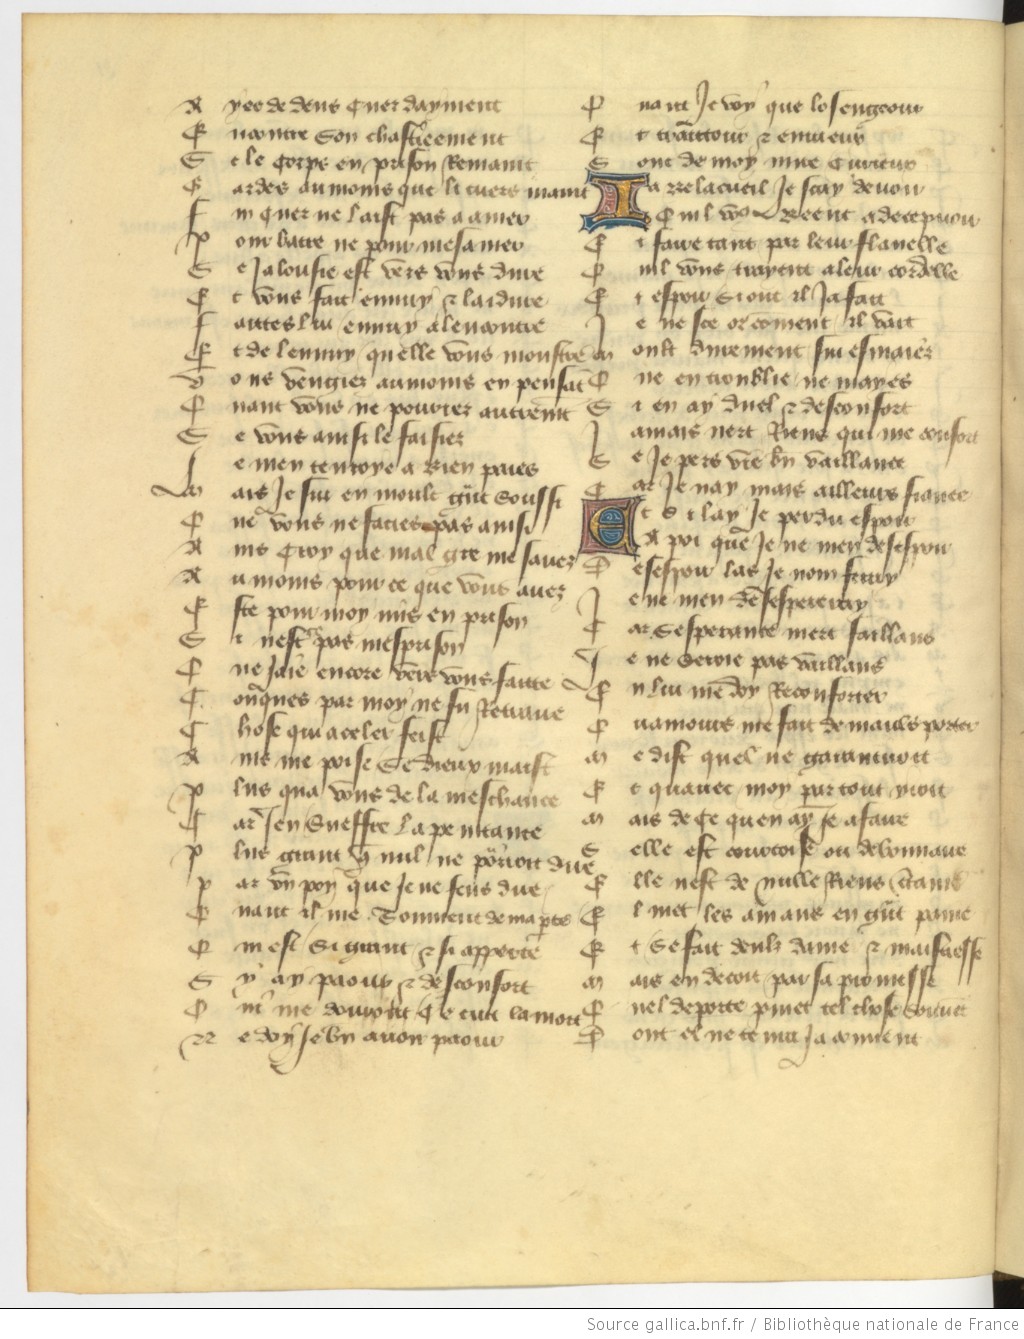 A yes dedens cuer dayment
E ncontre son chastieement
S e le corps en prison Remaint
G ardes au moins que li cuers maint
f in cuer ne laist pas a amer
P our batre ne pour mesamer
S e Jalousie est vers vous dure
E t vous fait ennuy et laidure
f aittes luy ennuy alencontre
E t de lennuy quelle vous monstre
V ous vengier au moins en pensant
Q uant vous ne pouvez autrement
S e vous ainsi le faisiez
J e men tenroye a bien paiez
M ais Je sui en moult grant soussi
Q ue vous ne facies pas ainsi
A ins croy que mal gre me savez
A u moins pour ce que vous avez
E ste pour moy mis en prison
S i nest pas mesprison
Q ue jaie encore vers vous faitte
C onques par moy ne fu Retraite
C hose qui a celer feist
A ins me poise se dieux maist
P lus qua vous de la mescheance
C ar Jen sueffre la penitance
P lus grant que nul ne pourroit dire
P ar un poy que Je ne fons dire
Q uant il me souvient de ma perte
Q ui est si grant et si apperte
S y ay paour et desconfort
Q ui me donront ce cuit la mort
N e doy Je bien avoir paour
Q uant Je voy que losengeour
E t traittour et envieux
S ont de moy nuire curieux
H a bel acueil Je scay de voir
Quil vous beent a decepvoir
E t faire tant par leur flavelle
Q uil vous trayent a leur cordelle
E t espoir si ont il Ja fait
J e ne sce or coment il vait
M oult durement sui esmaiez
Q ue en troublie ne mayes
S i en ay duel et desconfort
J amais nert Riens qui me confort
S e Je pers vostre bien vaillance
C ar Je nay mais ailleurs fiance
Et si lay Je perdu espoir
A poi que Je ne men desespoir
D esespoir las Je non feray
J e ne men desespereray
C ar sesperance mert faillans
J e ne seroie pas vaillans
E n lui me doy Reconforter
Q uamours me fait de maulx porter
M e dist quel me garantiroit
E t quavec moy par tout yroit
M ais de ce quen ay Je a faire
S elle est courtoise ou debonnaire
E lle nest de nulle Riens certaine
E l met les amans en grant paine
E t se fait deulz dame et maistresse
M ais en decoit par sa promesse
Q uel deporte puet tel chose souvent
D ont el ne tenra Ja convent